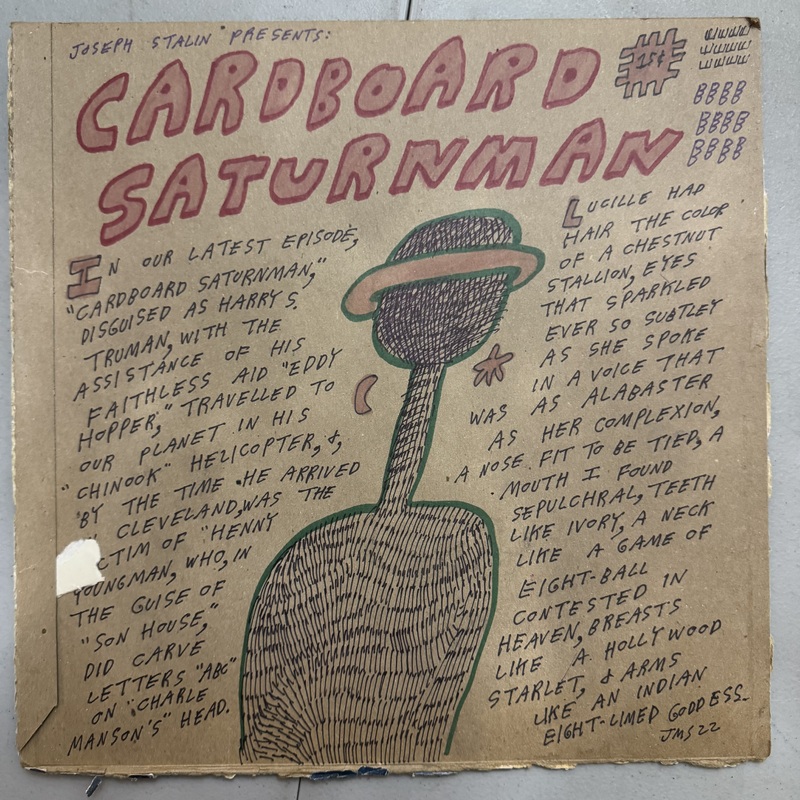 JOSEPH STALIN PRESENTS:
CARDBOARD
SATURNMAN
15¢
EEEE
EEEE
EEEE
BBBB
BBBB
BBBB
IN OUR LATEST EPISODE,
"CARDBOARD SATURNMAN,"
DISGUISED AS HARRY S.
TRUMAN, WITH THE
ASSISTANCE OF HIS
FAITHLESS AID "EDDY
HOPPER," TRAVELLED TO
OUR PLANET IN HIS
"CHINOOK" HELICOPTER, &,
BY THE TIME HE ARRIVED
CLEVELAND, WAS THE
CTIM OF "HENNY
YOUNGMAN, WHO, IN
THE GUISE OF
"SON HOUSE,"
DID CARVE
LETTERS "ABC"
ON "CHARLE
MANSON'S" HEAD.
LUCILLE HAD
HAIR THE COLOR
OF A CHESTNUT
STALLION, EYES
THAT SPARKLED
EVER SO SUBTLEY
AS SHE SPOKE
IN A VOICE THAT
WAS AS ALABASTER
AS HER COMPLEXION,
A NOSE FIT TO BE TIED, A
MOUTH I FOUND
SEPULCHRAL, TEETH
LIKE IVORY, A NECK
LIKE A GAME OF
EIGHT-BALL
CONTESTED IN
HEAVEN, BREASTS
LIKE A HOLLYWOOD
STARLET, & ARMS
LIKE AN INDIAN
EIGHT-LIMED GODDESS.
JMS 22